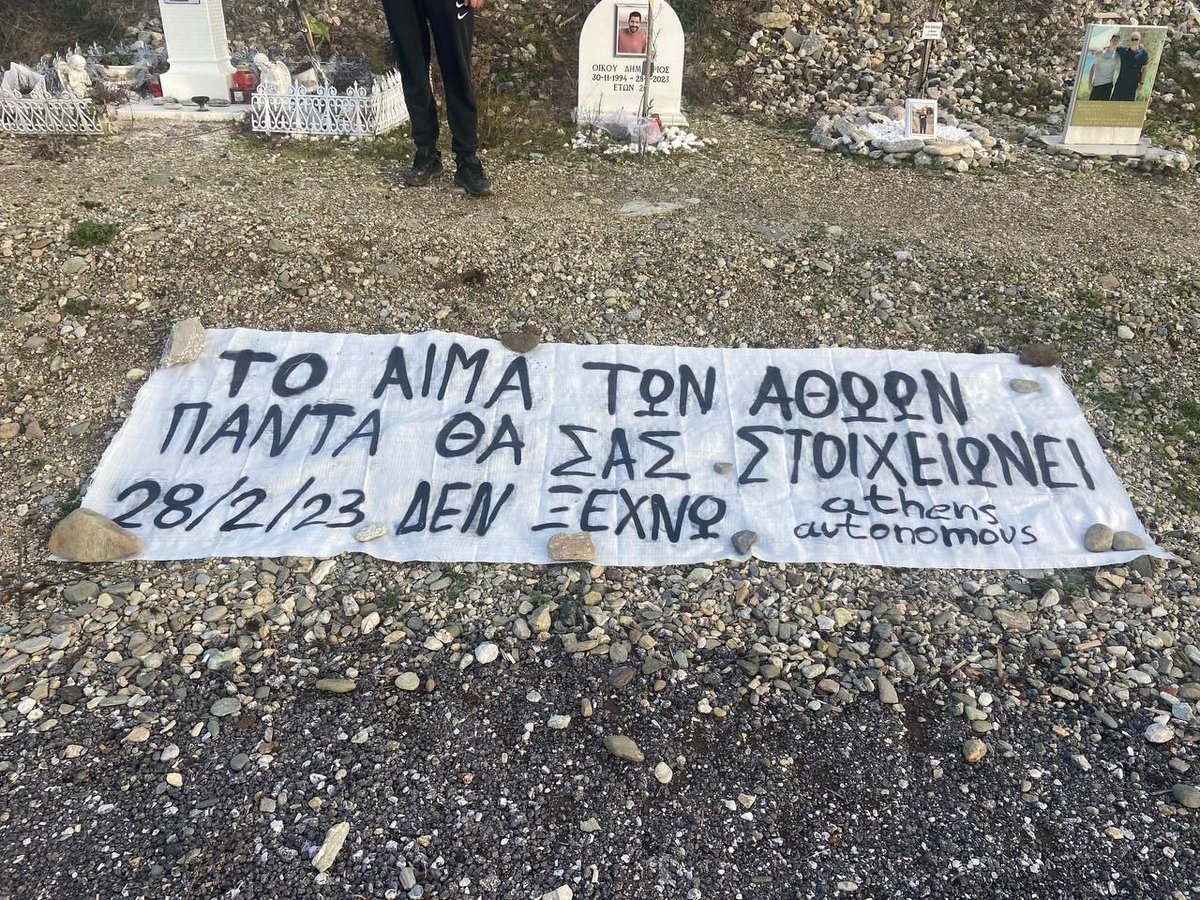 ΟΙΚΟΥ ΔΗΜΗΤΡΙΟΣ
30-11-1994 - 28
2023
ΕΤΩΝ 28
ΤΟ ΑΙΜΑ ΤΩΝ ΑΘΩΩΝ
ΠΑΝΤΑ ΘΑ ΣΑΣ ΣΤΟΙΧΕΙΩΝΕΙ
28/2/23 ΔΕΝ ΞΕΧΝΩ
athens
autonomous